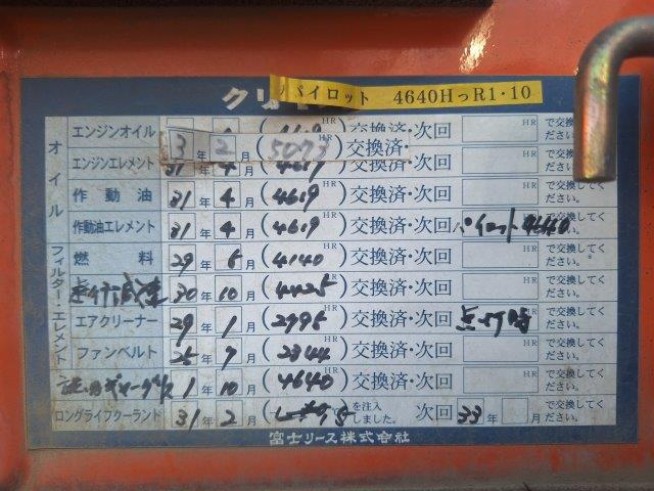 パイロット 4640HっR1・10
エンジンオイル HR 交換済・次回 HR で交換
3 年 2 月 (5073 HR) 交換済・
エンジンエレメント 31 4 (4619 交換済・次回 HR で交換
作動油 31 年 4 月 (4619 HR) 交換済・次回 HR で交換してください。
作動油エレメント 31 年 4 月 (4619 HR) 交換済・次回 パイロット4640 で交換してください。
燃料 29 年 6 月 (4140 HR) 交換済・次回 HR で交換してください。
30 年 10 月 (4425 HR) 交換済・次回 HR で交換してください。
エアクリーナー 29 年 1 月 (2995 HR) 交換済・次回 HR で交換してください。
ファンベルト 25 年 7 月 (2344 HR) 交換済・次回 HR で交換してください。
1 年 10 月 (4640 HR) 交換済・次回 HR で交換してください。
ロングライフクーラント 31 年 2 月 を注入しました。 次回 33 年 月 で交換してください。
オイル
フィルター・エレメント
富士リース株式会社